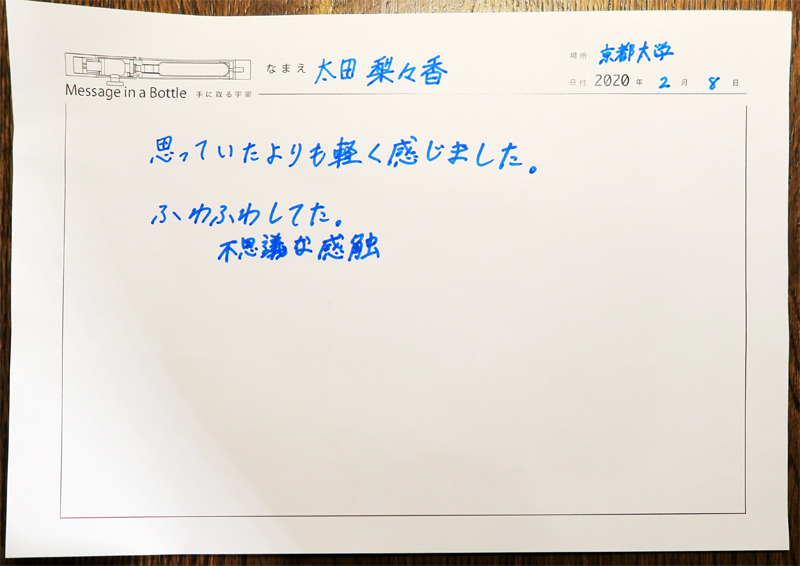 なまえ 太田 梨々香
場所 京都大学
Message in a Bottle 手に取る宇宙
日付 2020 年 2 月 8 日
思っていたよりも軽く感じました。
ふわふわしてた。
不思議な感触